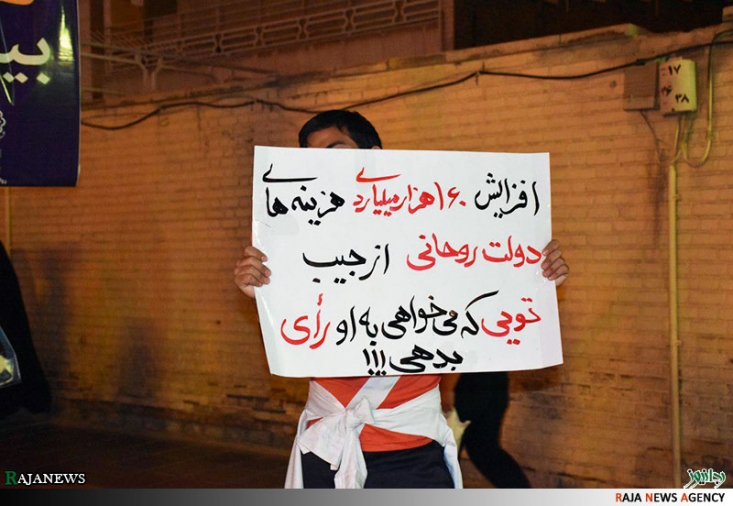 بی
۱۷
۲۸
افزایش ۱۶۰ هزار میلیاردی هزینه های
دولت روحانی از جیب
تویی که می‌خواهی به او رأی
بدهی!!!
RAJANEWS
رجانیوز
RAJA NEWS AGENCY